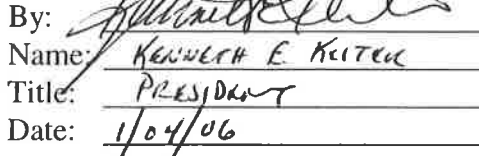 By:
Name: KENNETH E. KEITER
Title: PRESIDENT
Date: 1/04/06